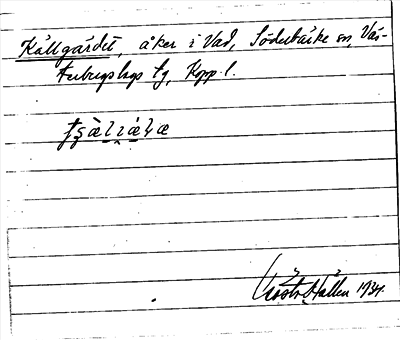 Källgärdet, åker i Vad, Söderbärke sn, Väs-
terbergslags tg, Kopp. l.
Gösta Hallen 1934.